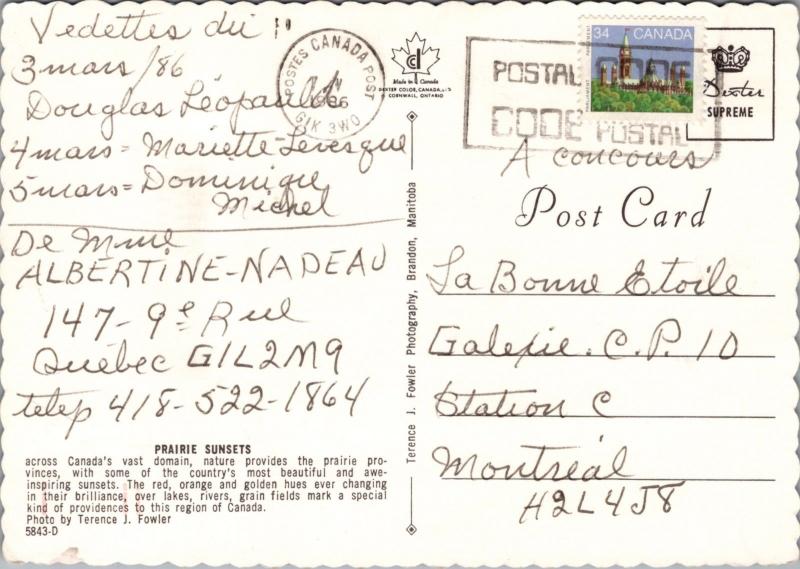 Vedettes du
3 mars/86
Douglas Léopaul
4 mars = Mariette Levesque
5 mars = Dominique
Michel
De Mme
ALBERTINE-NADEAU
147-9e Rue
Québec G1L2M9
telep 418-522-1864
PRAIRIE SUNSETS
across Canada's vast domain, nature provides the prairie pro-
vinces, with some of the country's most beautiful and awe-
inspiring sunsets. The red, orange and golden hues ever changing
in their brilliance, over lakes, rivers, grain fields mark a special
kind of providences to this region of Canada.
Photo by Terence J. Fowler
5843-D
POSTES CANADA POST
G1K 3W0
Made in Canada
DEXTER COLOR, CANADA, LTD
CORNWALL, ONTARIO
Terence J. Fowler Photography, Brandon, Manitoba
34 CANADA
POSTAL CODE
CODE POSTAL
Dexter
SUPREME
A concours
Post Card
La Bonne Etoile
Galerie. C.P. 10
Station C
Montréal
H2L4J8